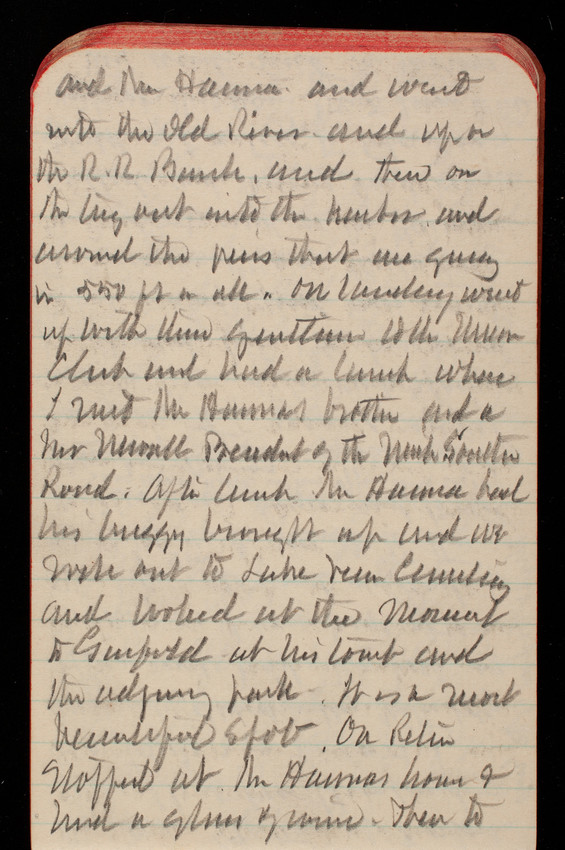 and Mr Hanna. and went
into the Old River. and up on
the R.R Bank. and then on
the tug out into the harbor and
around the piers that are going
in 550 ft in all. On landing went
up with these gentlemen to the Union
Club and had a lunch where
I met Mr Hannas brother and a
Mr President of the
Road. After lunch Mr Hanna had
his buggy brought up and we
rode out to Lake View Cemetery
and looked at the Monument
to Garfield at his tomb and
the adjoining park. It is a most
beautiful spot. On Return
Stopped at Mr Hannas house &
had a glass of wine. Then to